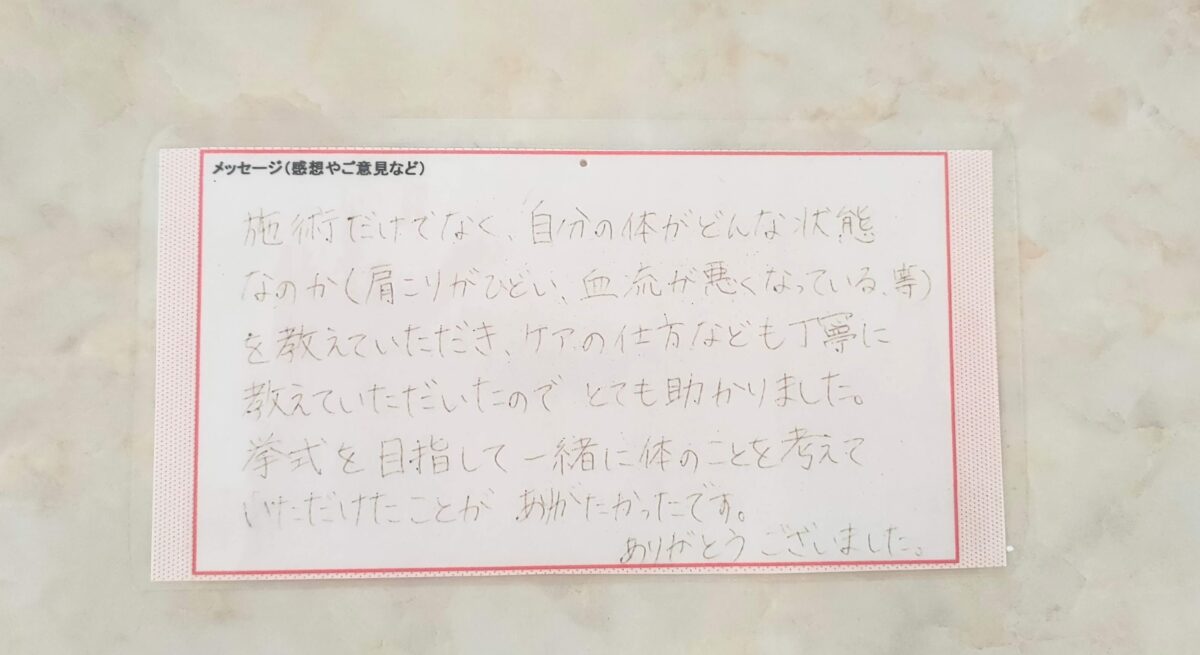 メッセージ(感想やご意見など)
施術だけでなく、自分の体がどんな状態
なのか(肩こりがひどい、血流が悪くなっている、等)
を教えていただき、ケアの仕方なども丁寧に
教えていただいたので とても助かりました。
挙式を目指して一緒に体のことを考えて
いただけたことが ありがたかったです。
ありがとうございました。